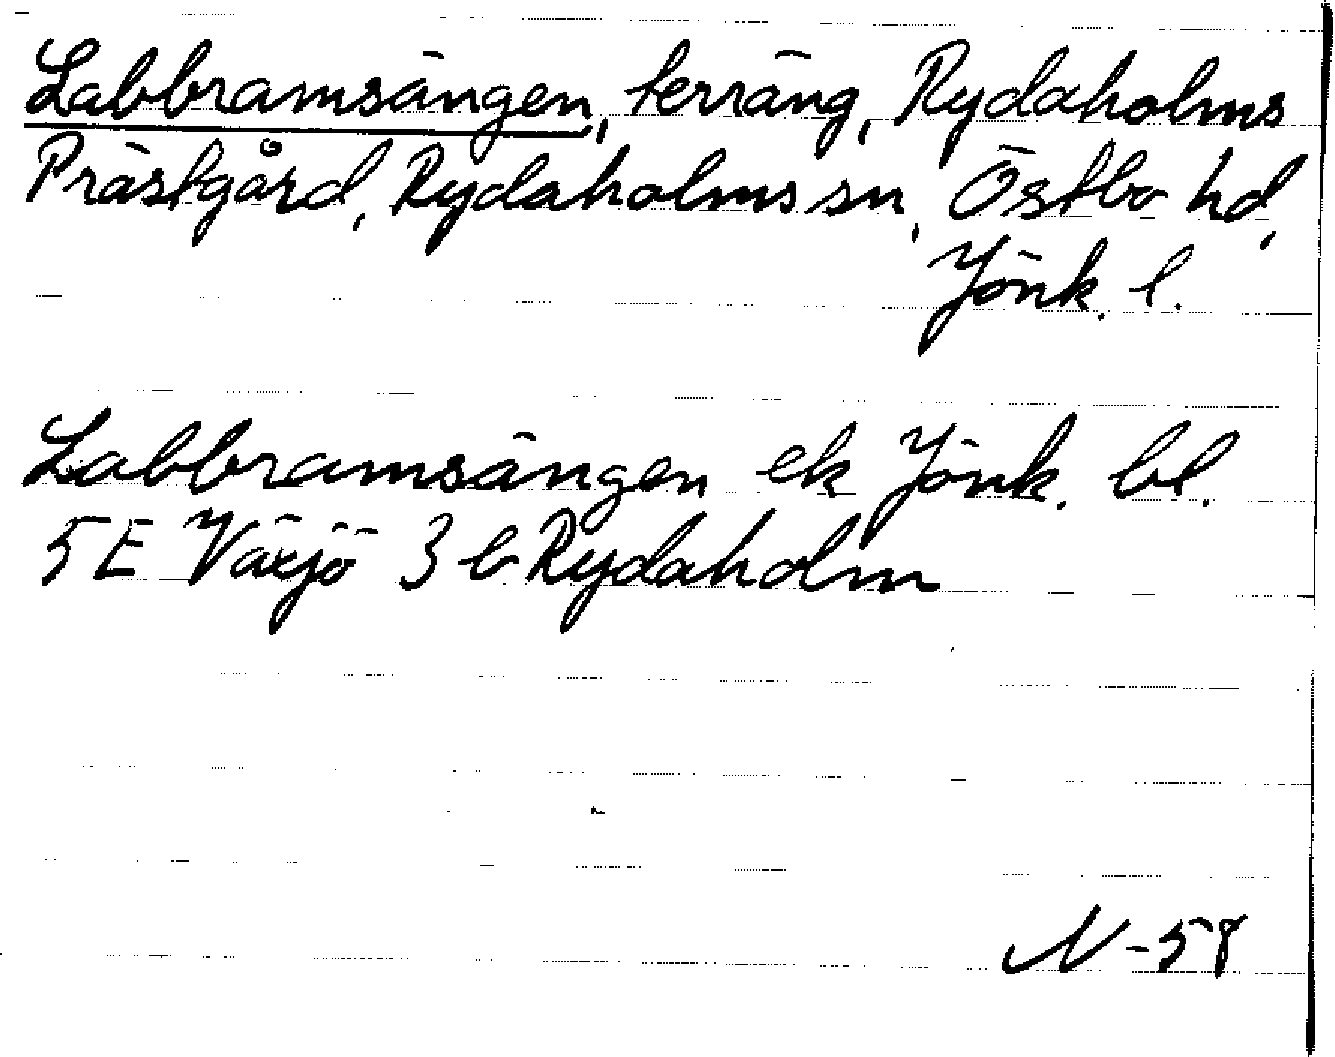 Labbramsängen, terräng, Rydaholms
Prästgård, Rydaholms sn, Östbo hd,
Jönk. l.
Labbramsängen ek Jönk. bl.
5E Växjö 3 b Rydaholm
N-58